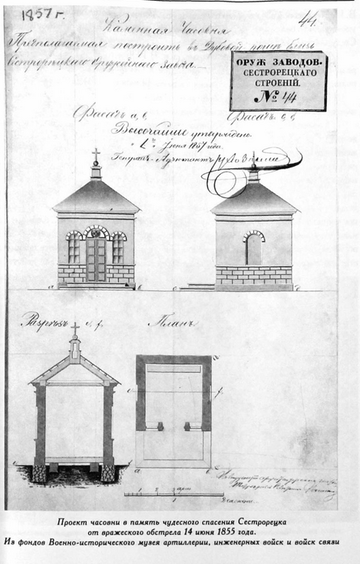 1857 г.
44.
Каменная Часовня
Предполагаемая построить въ Дубовой рощѣ близъ
Сестрорѣцкаго Оружейнаго завода.
ОРУЖ ЗАВОДОВ.
СЕСТРОРЕЦКАГО
СТРОЕНІЙ.
№ 44
Фасадъ a, b,
Фасадъ b, c,
Высочайше утверждено
Іюня 1857 года.
Генералъ-Адъютантъ
Разрѣзъ e, f,
Планъ
Проект часовни в память чудесного спасения Сестрорецка
от вражеского обстрела 14 июня 1855 года.
Из фондов Военно-исторического музея артиллерии, инженерных войск и войск связи